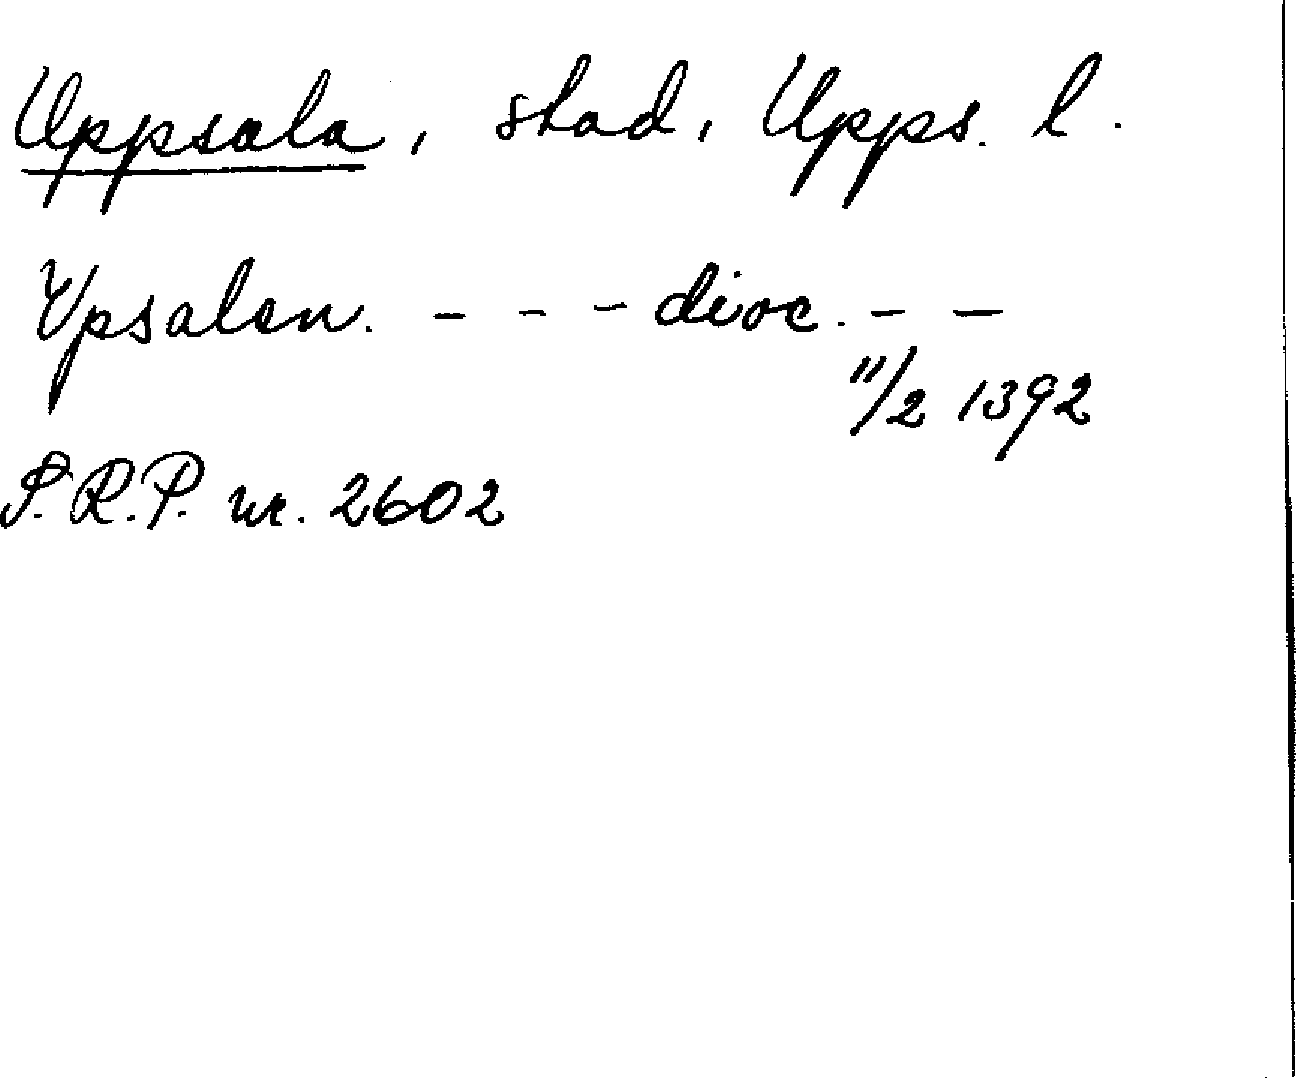 Uppsala, stad, Upps. l.
Vpsalen. - - - dioc. - -
11/2 1392
S.R.P. nr. 2602